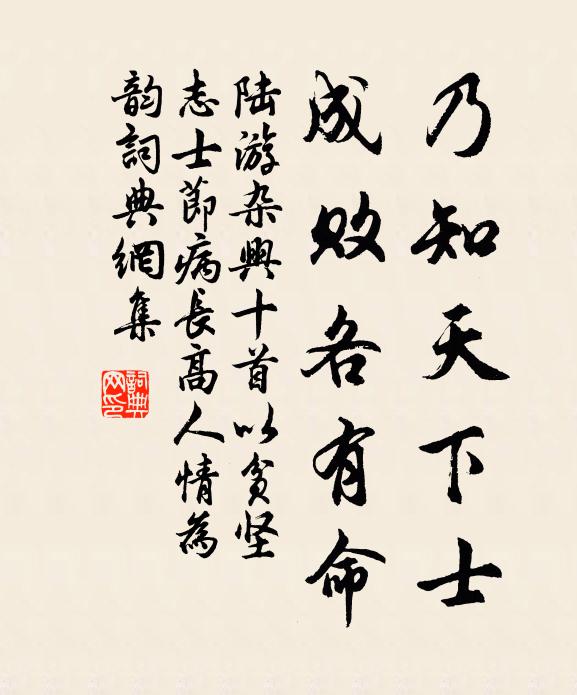 乃知天下士
成败各有命
陆游杂興十首以貧坚
志士節病長高人情為
韵詞典網集
詞典
网印